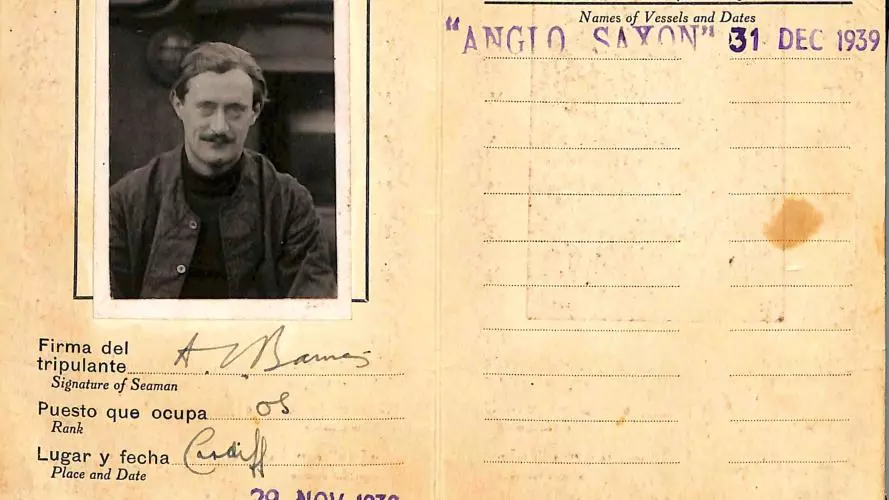 Firma del
tripulante A. V. Barnes
Signature of Seaman
Puesto que ocupa OS
Rank
Lugar y fecha Cardiff
Place and Date
29 NOV 1939
Names of Vessels and Dates
"ANGLO SAXON" 31 DEC 1939